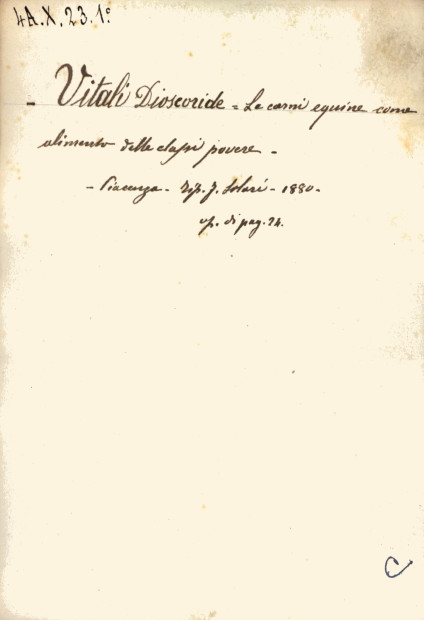 4A.X.23.1°
- Vitali Dioscoride = Le carni equine come
alimento delle classi povere -
- Piacenza - Tip. J. Solari - 1880 -
op. di pag. 24.
C